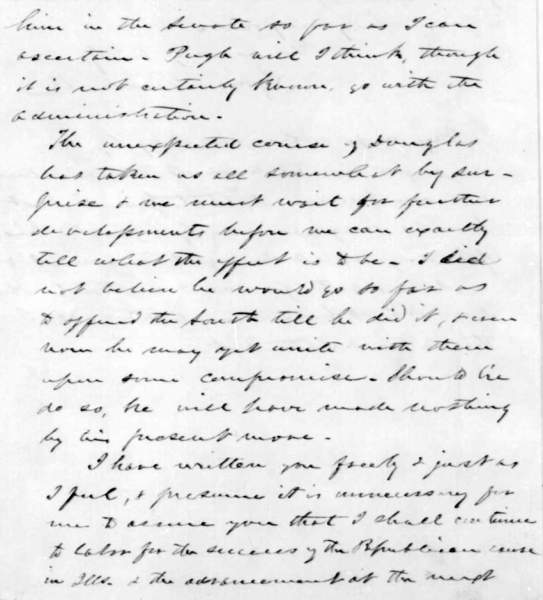 him in the senate so far as I can
ascertain - Pugh will I think, though
it is not certainly known, go with the
administration -
The unexpected course of Douglas
has taken us all somewhat by sur-
prise & we must wait for further
developments before we can exactly
tell what the effect is to be - I did
not believe he would go so far as
to offend the South till he did it, & even
now he may yet unite with them
upon some compromise - Should he
do so, he will have made nothing
by his present move -
I have written you freely & just as
I feel, & presume it is unnecessary for
me to assure you that I shall continue
to labor for the success of the Republican cause
in Ills. & the advancement at the next